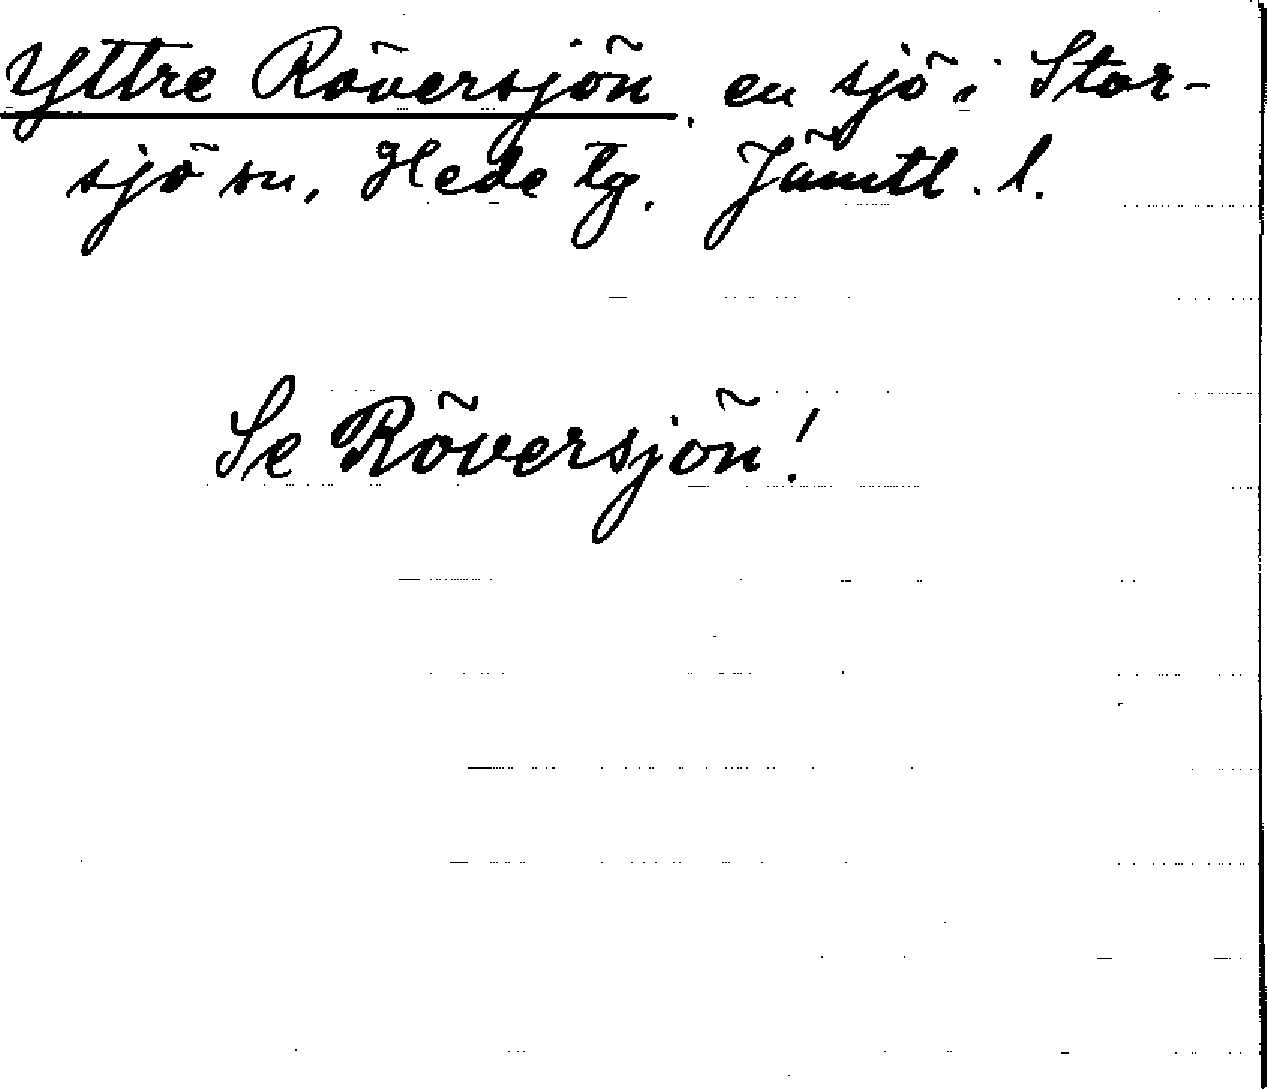 Yttre Röversjön, en sjö i Stor-
sjö sn, Hede tg. Jämtl. l.
Se Röversjön!